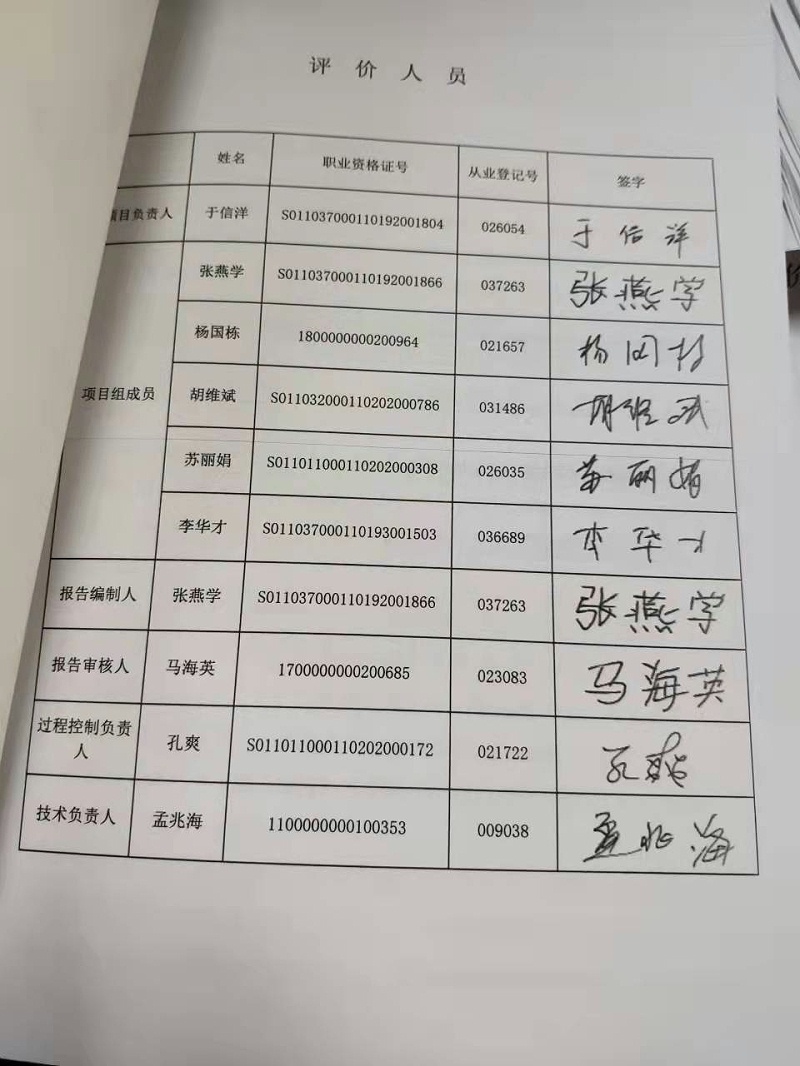 评价人员
姓名 职业资格证号 从业登记号 签字
项目负责人 于信洋 S011037000110192001804 026054 于信洋
张燕学 S011037000110192001866 037263 张燕学
杨国栋 1800000000200964 021657 杨国栋
项目组成员 胡维斌 S011032000110202000786 031486 胡维斌
苏丽娟 S011011000110202000308 026035 苏丽娟
李华才 S011037000110193001503 036689 李华才
报告编制人 张燕学 S011037000110192001866 037263 张燕学
报告审核人 马海英 1700000000200685 023083 马海英
过程控制负责
人 孔爽 S011011000110202000172 021722 孔爽
技术负责人 孟兆海 1100000000100353 009038 孟兆海